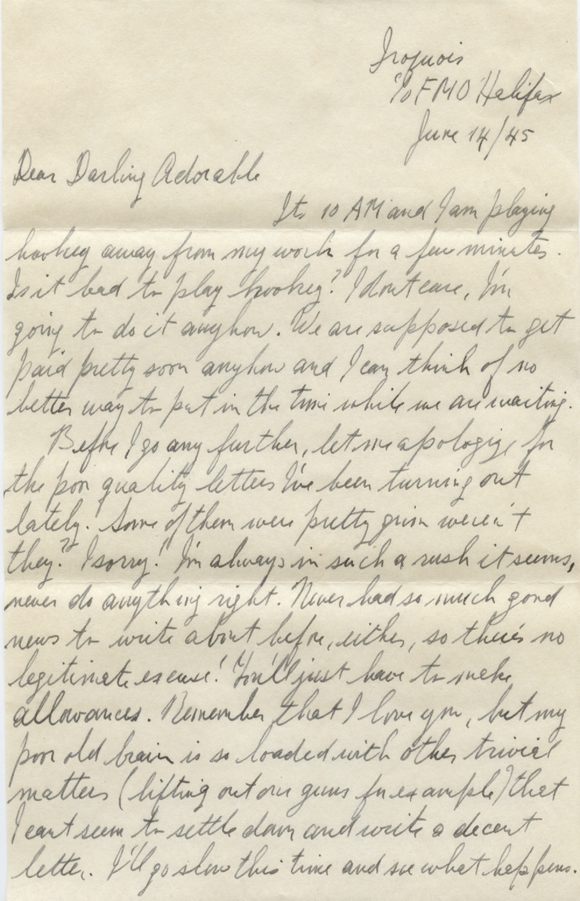 Iroquois
c/o FMO Halifax
June 14/45
Dear Darling Adorable
Its 10 AM and I am playing
hookey away from my work for a few minutes.
Is it bad to play hookey? I dont care, I'm
going to do it anyhow. We are supposed to get
paid pretty soon anyhow and I can think of no
better way to put in the time while we are waiting.
Before I go any further, let me apologize for
the poor quality letters I've been turning out
lately. Some of them were pretty grim weren't
they? I sorry! I'm always in such a rush it seems,
never do anything right. Never had so much good
news to write about before, either, so there's no
legitimate excuse! You'll just have to make
allowances. Remember that I love you, but my
poor old brain is so loaded with other trivial
matters (lifting out our guns for example) that
I cant seem to settle down and write a decent
letter. I'll go slow this time and see what happens.